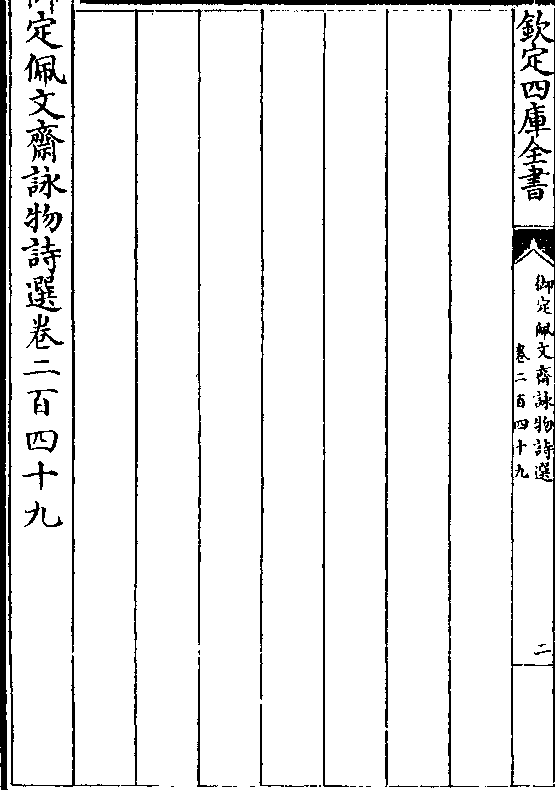 欽定四庫全書
御定佩文齋詠物詩選
卷二百四十九
二
御定佩文齋詠物詩選卷二百四十九